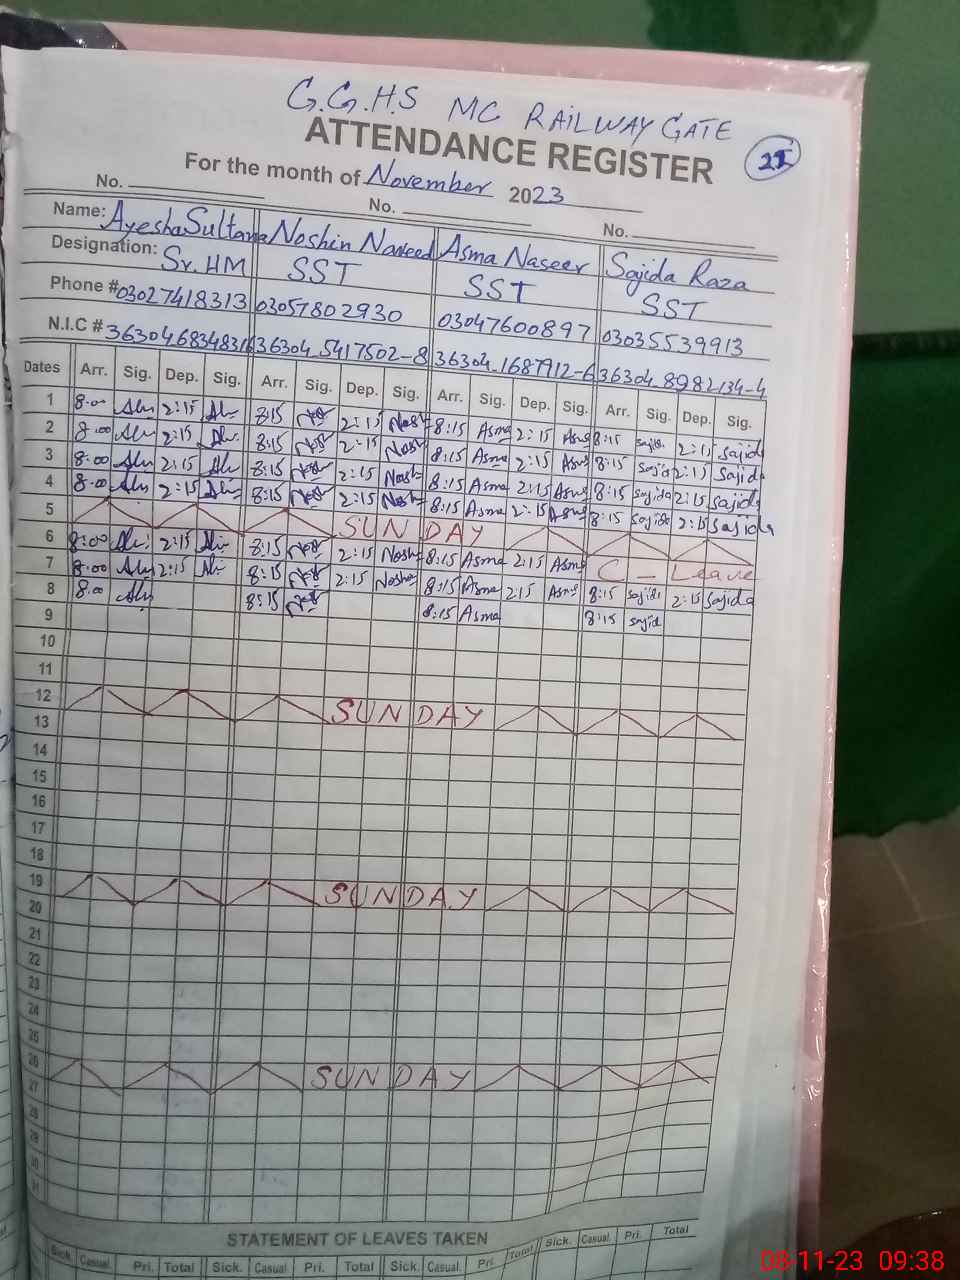 G.G.H.S MC RAILWAY GATE
ATTENDANCE REGISTER
For the month of November 2023
No. No. No.
Name: Ayesha Sultana Noshin Naveed Asma Naseer Sajida Raza
Designation: Sr. HM SST SST SST
Phone # 03027418313 03057802930 03047600897 03035539913
N.I.C # 36304 5417502-8 36304-1687912-6 36304-8982134-4
Dates Arr. Sig. Dep. Sig. Arr. Sig. Dep. Sig. Arr. Sig. Dep. Sig. Arr. Sig. Dep. Sig.
1 8:00 2:15 8:15 2:15 Nosh 8:15 Asma 2:15 Asma 8:15 Sajida 2:15 Sajida
2 8:00 2:15 8:15 2:15 Nosh 8:15 Asma 2:15 Asma 8:15 Sajida 2:15 Sajida
3 8:00 2:15 8:15 2:15 Nosh 8:15 Asma 2:15 Asma 8:15 Sajida 2:15 Sajida
4 8:00 2:15 8:15 2:15 Nosh 8:15 Asma 2:15 Asma 8:15 Sajida 2:15 Sajida
5 SUNDAY
6 8:00 2:15 8:15 2:15 Nosh 8:15 Asma 2:15 Asma C-Leave
7 8:00 2:15 8:15 2:15 Nosh 8:15 Asma 2:15 Asma 8:15 Sajida 2:15 Sajida
8 8:00 8:15 8:15 Asma 8:15 Sajid
9
10
11
12 SUNDAY
13
14
15
16
17
18
19 SUNDAY
20
21
22
23
24
25
26 SUNDAY
27
28
29
30
31
STATEMENT OF LEAVES TAKEN
Sick. Casual. Pri. Total Sick. Casual Pri. Total Sick. Casual. Pri. Total Sick. Casual. Pri. Total
08-11-23 09:38